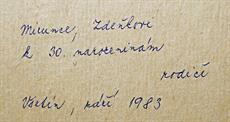 Mirunce, Zdeňkovi
k 30. narozeninám
rodiče
Vsetín, září 1983